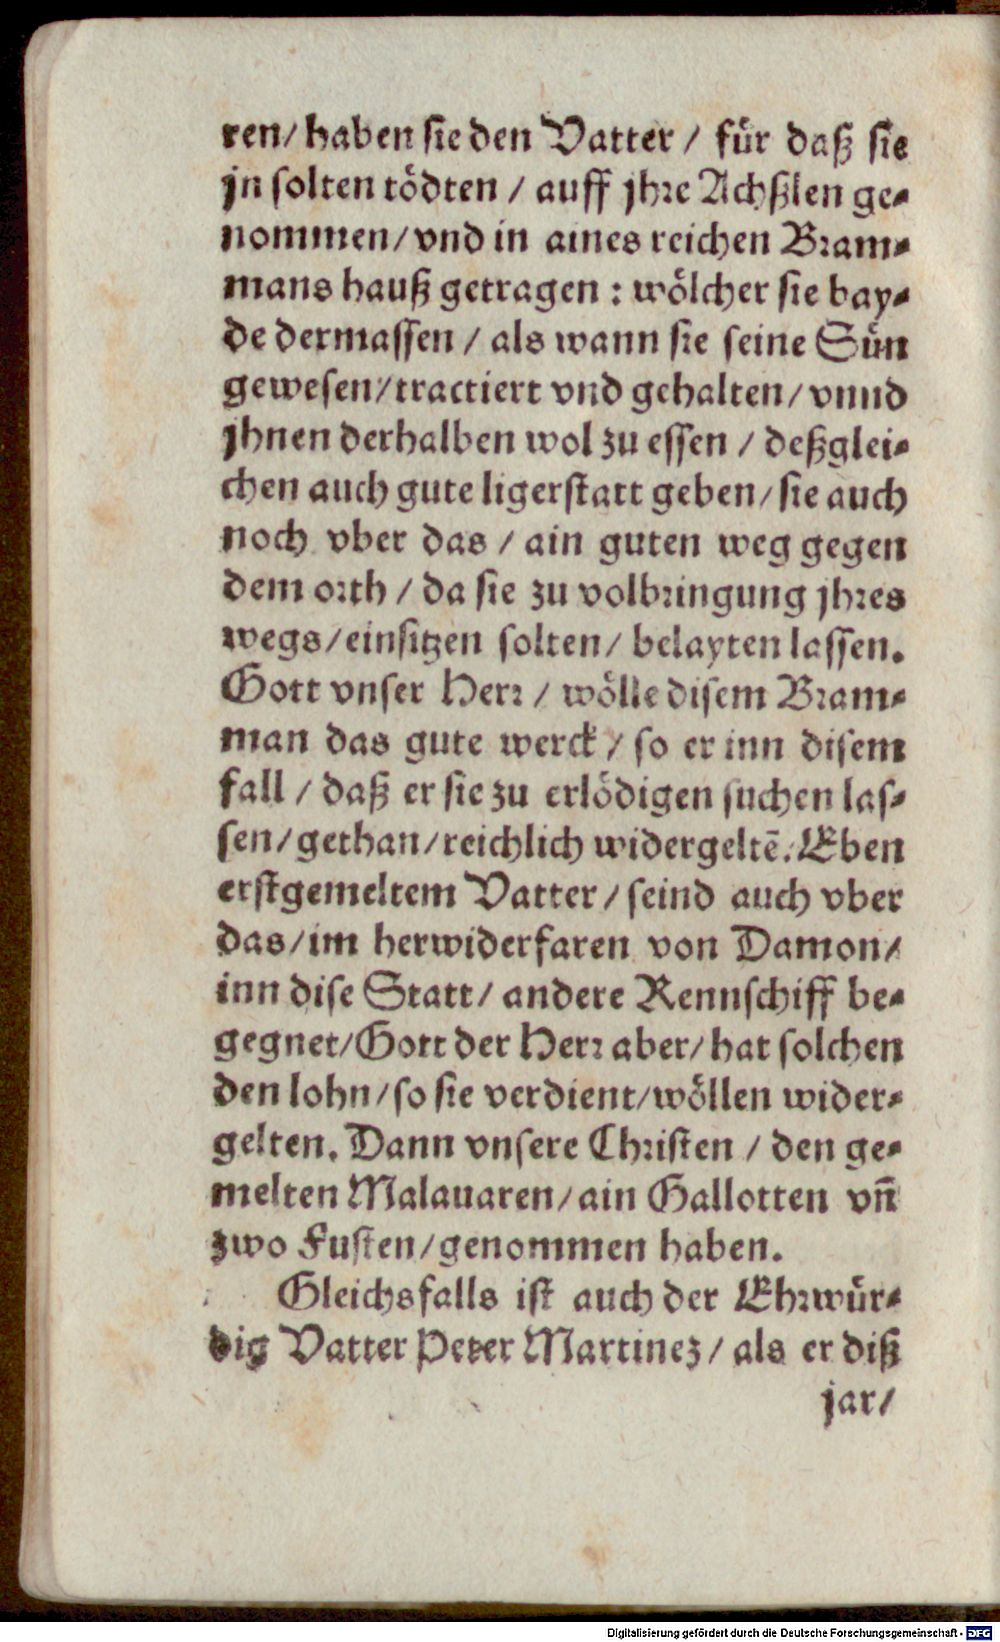 ren/ haben sie den Vatter / für daß sie
jn solten tödten / auff jhre Achßlen ge-
nommen/ vnd in aines reichen Bram-
mans hauß getragen : wölcher sie bay-
de dermassen / als wann sie seine Sün
gewesen/ tractiert vnd gehalten/ vnnd
jhnen derhalben wol zu essen / deßglei-
chen auch gute ligerstatt geben/ sie auch
noch vber das / ain guten weg gegen
dem orth / da sie zu volbringung jhres
wegs/ einsitzen solten/ belayten lassen.
Gott vnser Herr / wölle disem Bram-
man das gute werck / so er inn disem
fall / daß er sie zu erlödigen suchen las-
sen/ gethan/ reichlich widergeltē. Eben
erstgemeltem Vatter / seind auch vber
das/ im herwiderfaren von Damon/
inn dise Statt/ andere Rennschiff be-
gegnet/ Gott der Herr aber/ hat solchen
den lohn/ so sie verdient/ wöllen wider-
gelten. Dann vnsere Christen / den ge-
melten Malauaren/ ain Gallotten vñ
zwo Fusten/ genommen haben.
Gleichsfalls ist auch der Ehrwür-
dig Vatter Peter Martinez/ als er diß
jar/
Digitalisierung gefördert durch die Deutsche Forschungsgemeinschaft - DFG